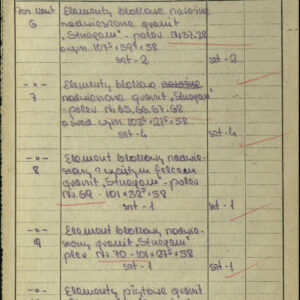 Elementy blokowe narożne
6 nadwieszone granit
„Strzegom" - polew Nr. 37.38
o wym. 107⁵ × 59⁵ × 58
szt - 2 szt - 2
-"- Elementy blokowe
7 nadwieszone granit „Strzegom"
polew Nr 65, 66, 67, 68
o śred. wym. 102⁵ × 27⁵ × 58
szt - 4 szt - 4
-"- Element blokowy nadwie-
8 szony z wyciętym felcem
granit „Strzegom" - polew
Nr 69 - 101 × 32⁵ × 58
szt - 1 szt - 1
-"- Element blokowy nadwie-
9 szony granit „Strzegom"
polew Nr. 70 - 101 × 27⁵ × 58
szt - 1 szt - 1
-"- Elementy płytowe granit